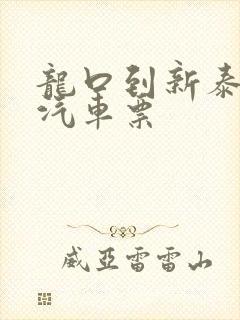 龍口到新泰
汽車票
威亞雷雷山